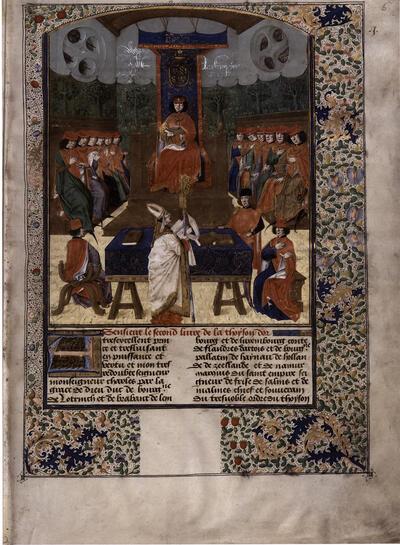 Sensieut le second livre de la thoyson dor
A tresexcellent prin
ce et tresluisant
en puissance et
vertu et mon tres
redoubte seigneur
monseigneur charles par la
grace de dieu duc de bourgne
de Lotrich et de brabant de lem
bourg et de luxembourg conte
de flandres dartois et de bourgne
pallatin de hainau de hollan
de de zeellande et de namur
marquis du saint empire sei
gneur de frise de salins et de
malines chief et souverain
du tresnoble ordre du thoyson